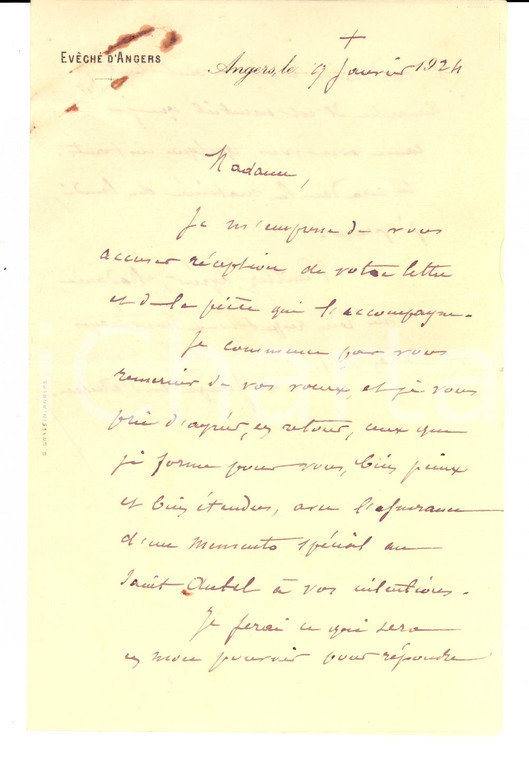 EVÊCHÉ D'ANGERS
Angers, le 9 Janvier 1924
Madame,
Je m'empresse de vous
accuser réception de votre lettre
et de la pièce qui l'accompagne.
Je commence par vous
remercier de vos voeux, et je vous
prie d'agréer, en retour, ceux que
je forme pour vous, bien pieux
et bien étendus, avec l'assurance
d'un memento spécial au
Saint Autel à vos intentions.
Je ferai ce qui sera
en mon pouvoir pour répondre